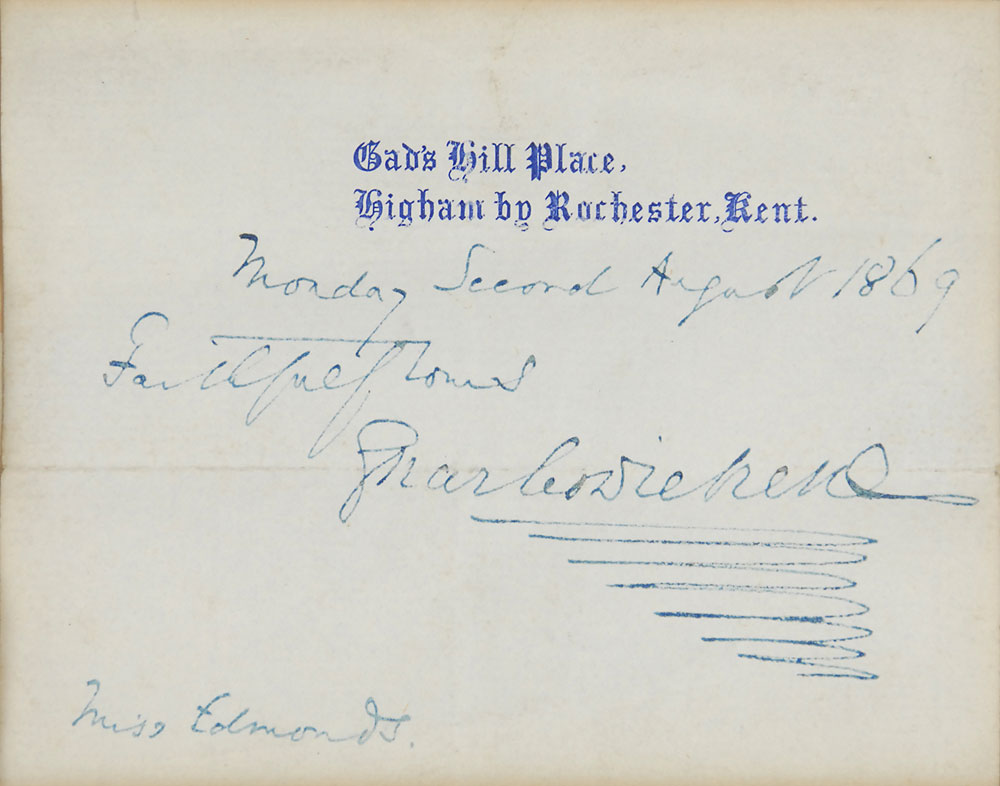 Gad's Hill Place,
Higham by Rochester, Kent.
Monday Second August 1869
Faithfully Yours
Charles Dickens
Miss Edmonds.